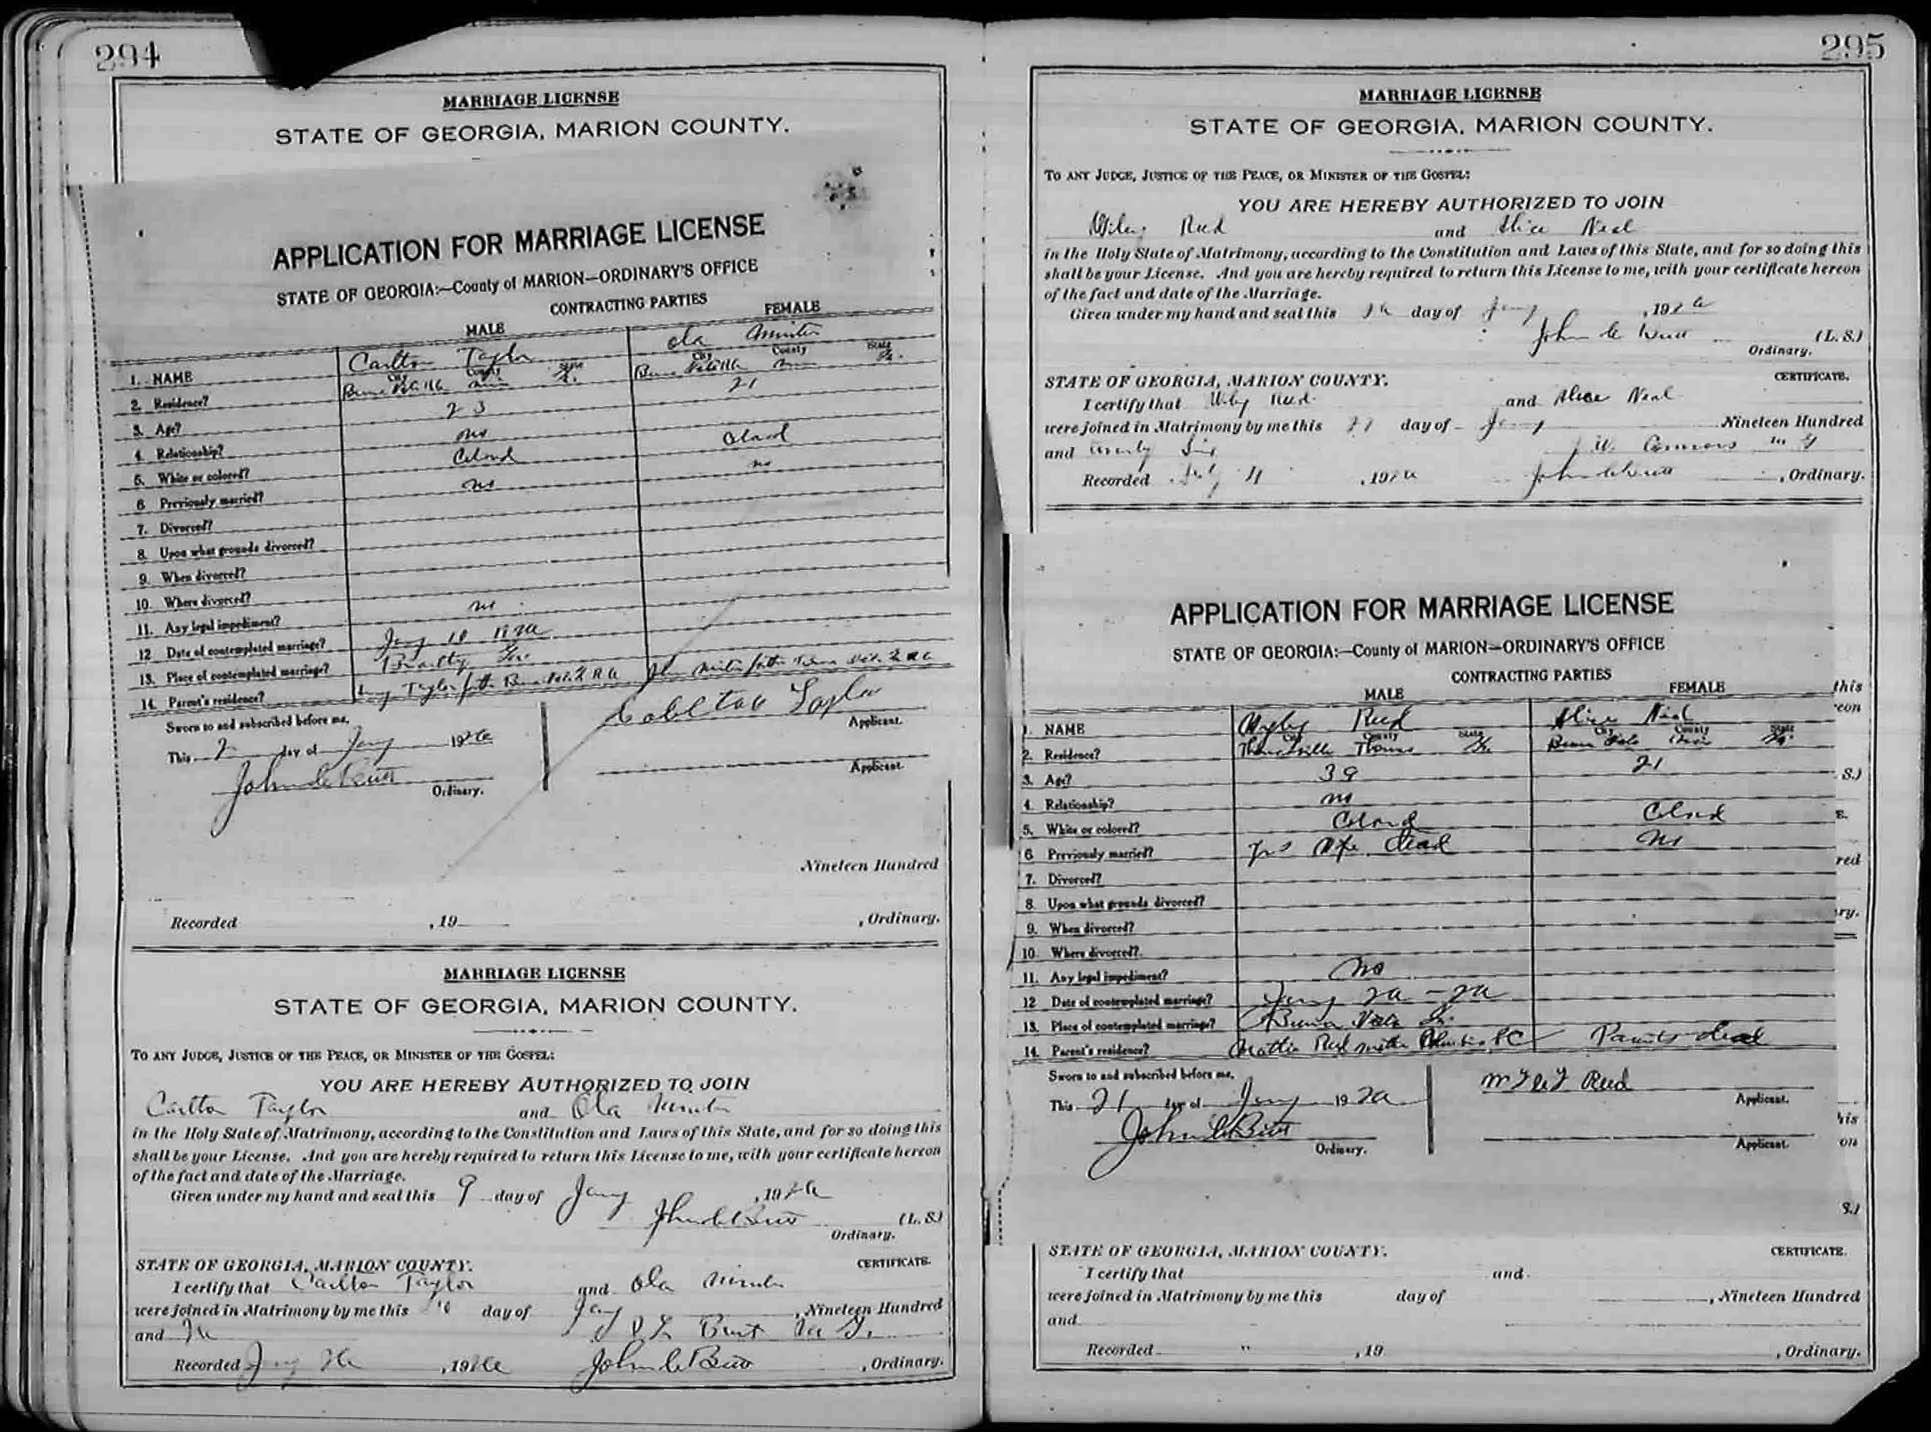 294
MARRIAGE LICENSE
STATE OF GEORGIA, MARION COUNTY.
APPLICATION FOR MARRIAGE LICENSE
STATE OF GEORGIA:—County of MARION—ORDINARY'S OFFICE
CONTRACTING PARTIES
MALE FEMALE
1. NAME Carlton Taylor Ola Minter
City County State City County State
2. Residence? Buena Vista Ga.
3. Age? 23 21
4. Relationship? no
5. White or colored? Colored Colored
6 Previously married? no no
7. Divorced?
8. Upon what grounds divorced?
9. When divorced?
10. Where divorced?
11. Any legal impediment? no
12 Date of contemplated marriage? Jany 10
13. Place of contemplated marriage?
14. Parent's residence? Taylor father
Sworn to and subscribed before me, Taylor
Applicant.
This 2 day of Jany 192
John C Butt
Ordinary. Applicant.
Nineteen Hundred
Recorded , 19 , Ordinary.
MARRIAGE LICENSE
STATE OF GEORGIA, MARION COUNTY.
TO ANY JUDGE, JUSTICE OF THE PEACE, OR MINISTER OF THE GOSPEL:
YOU ARE HEREBY AUTHORIZED TO JOIN
Carlton Taylor and Ola Minter
in the Holy State of Matrimony, according to the Constitution and Laws of this State, and for so doing this
shall be your License. And you are hereby required to return this License to me, with your certificate hereon
of the fact and date of the Marriage.
Given under my hand and seal this 9 day of Jany , 192
John C Butt (L. S.)
Ordinary.
STATE OF GEORGIA, MARION COUNTY. CERTIFICATE.
I certify that Carlton Taylor and Ola Minter
were joined in Matrimony by me this 10 day of Jany , Nineteen Hundred
and M. G.
Recorded Jany , 192 John C Butt , Ordinary.
295
MARRIAGE LICENSE
STATE OF GEORGIA, MARION COUNTY.
TO ANY JUDGE, JUSTICE OF THE PEACE, OR MINISTER OF THE GOSPEL:
YOU ARE HEREBY AUTHORIZED TO JOIN
Reed and Alice Neal
in the Holy State of Matrimony, according to the Constitution and Laws of this State, and for so doing this
shall be your License. And you are hereby required to return this License to me, with your certificate hereon
of the fact and date of the Marriage.
Given under my hand and seal this day of Jany , 192
John C Butt (L. S.)
Ordinary.
STATE OF GEORGIA, MARION COUNTY. CERTIFICATE.
I certify that Reed and Alice Neal
were joined in Matrimony by me this day of Jany Nineteen Hundred
and Twenty Six J. W.
Recorded , 192 John C Butt , Ordinary.
APPLICATION FOR MARRIAGE LICENSE
STATE OF GEORGIA:—County of MARION—ORDINARY'S OFFICE
CONTRACTING PARTIES
MALE FEMALE this
1. NAME Reed Alice Neal eon
City County State City County State
2. Residence? Thomasville Thomas Ga. Buena Vista Ga.
3. Age? 39 21 S.)
4. Relationship? no
5. White or colored? Colored Colored E.
6 Previously married? yes wife dead no red
7. Divorced?
8. Upon what grounds divorced?
9. When divorced? ry.
10. Where divorced?
11. Any legal impediment? no
12 Date of contemplated marriage? Jany
13. Place of contemplated marriage? Buena Vista Ga.
14. Parent's residence? Mattie Reed mother Parents dead
Sworn to and subscribed before me, Reed
Applicant.
This 21 day of Jany 192
John C Butt his
Ordinary. Applicant. on
S.)
STATE OF GEORGIA, MARION COUNTY. CERTIFICATE.
I certify that and
were joined in Matrimony by me this day of , Nineteen Hundred
and
Recorded , 19 , Ordinary.